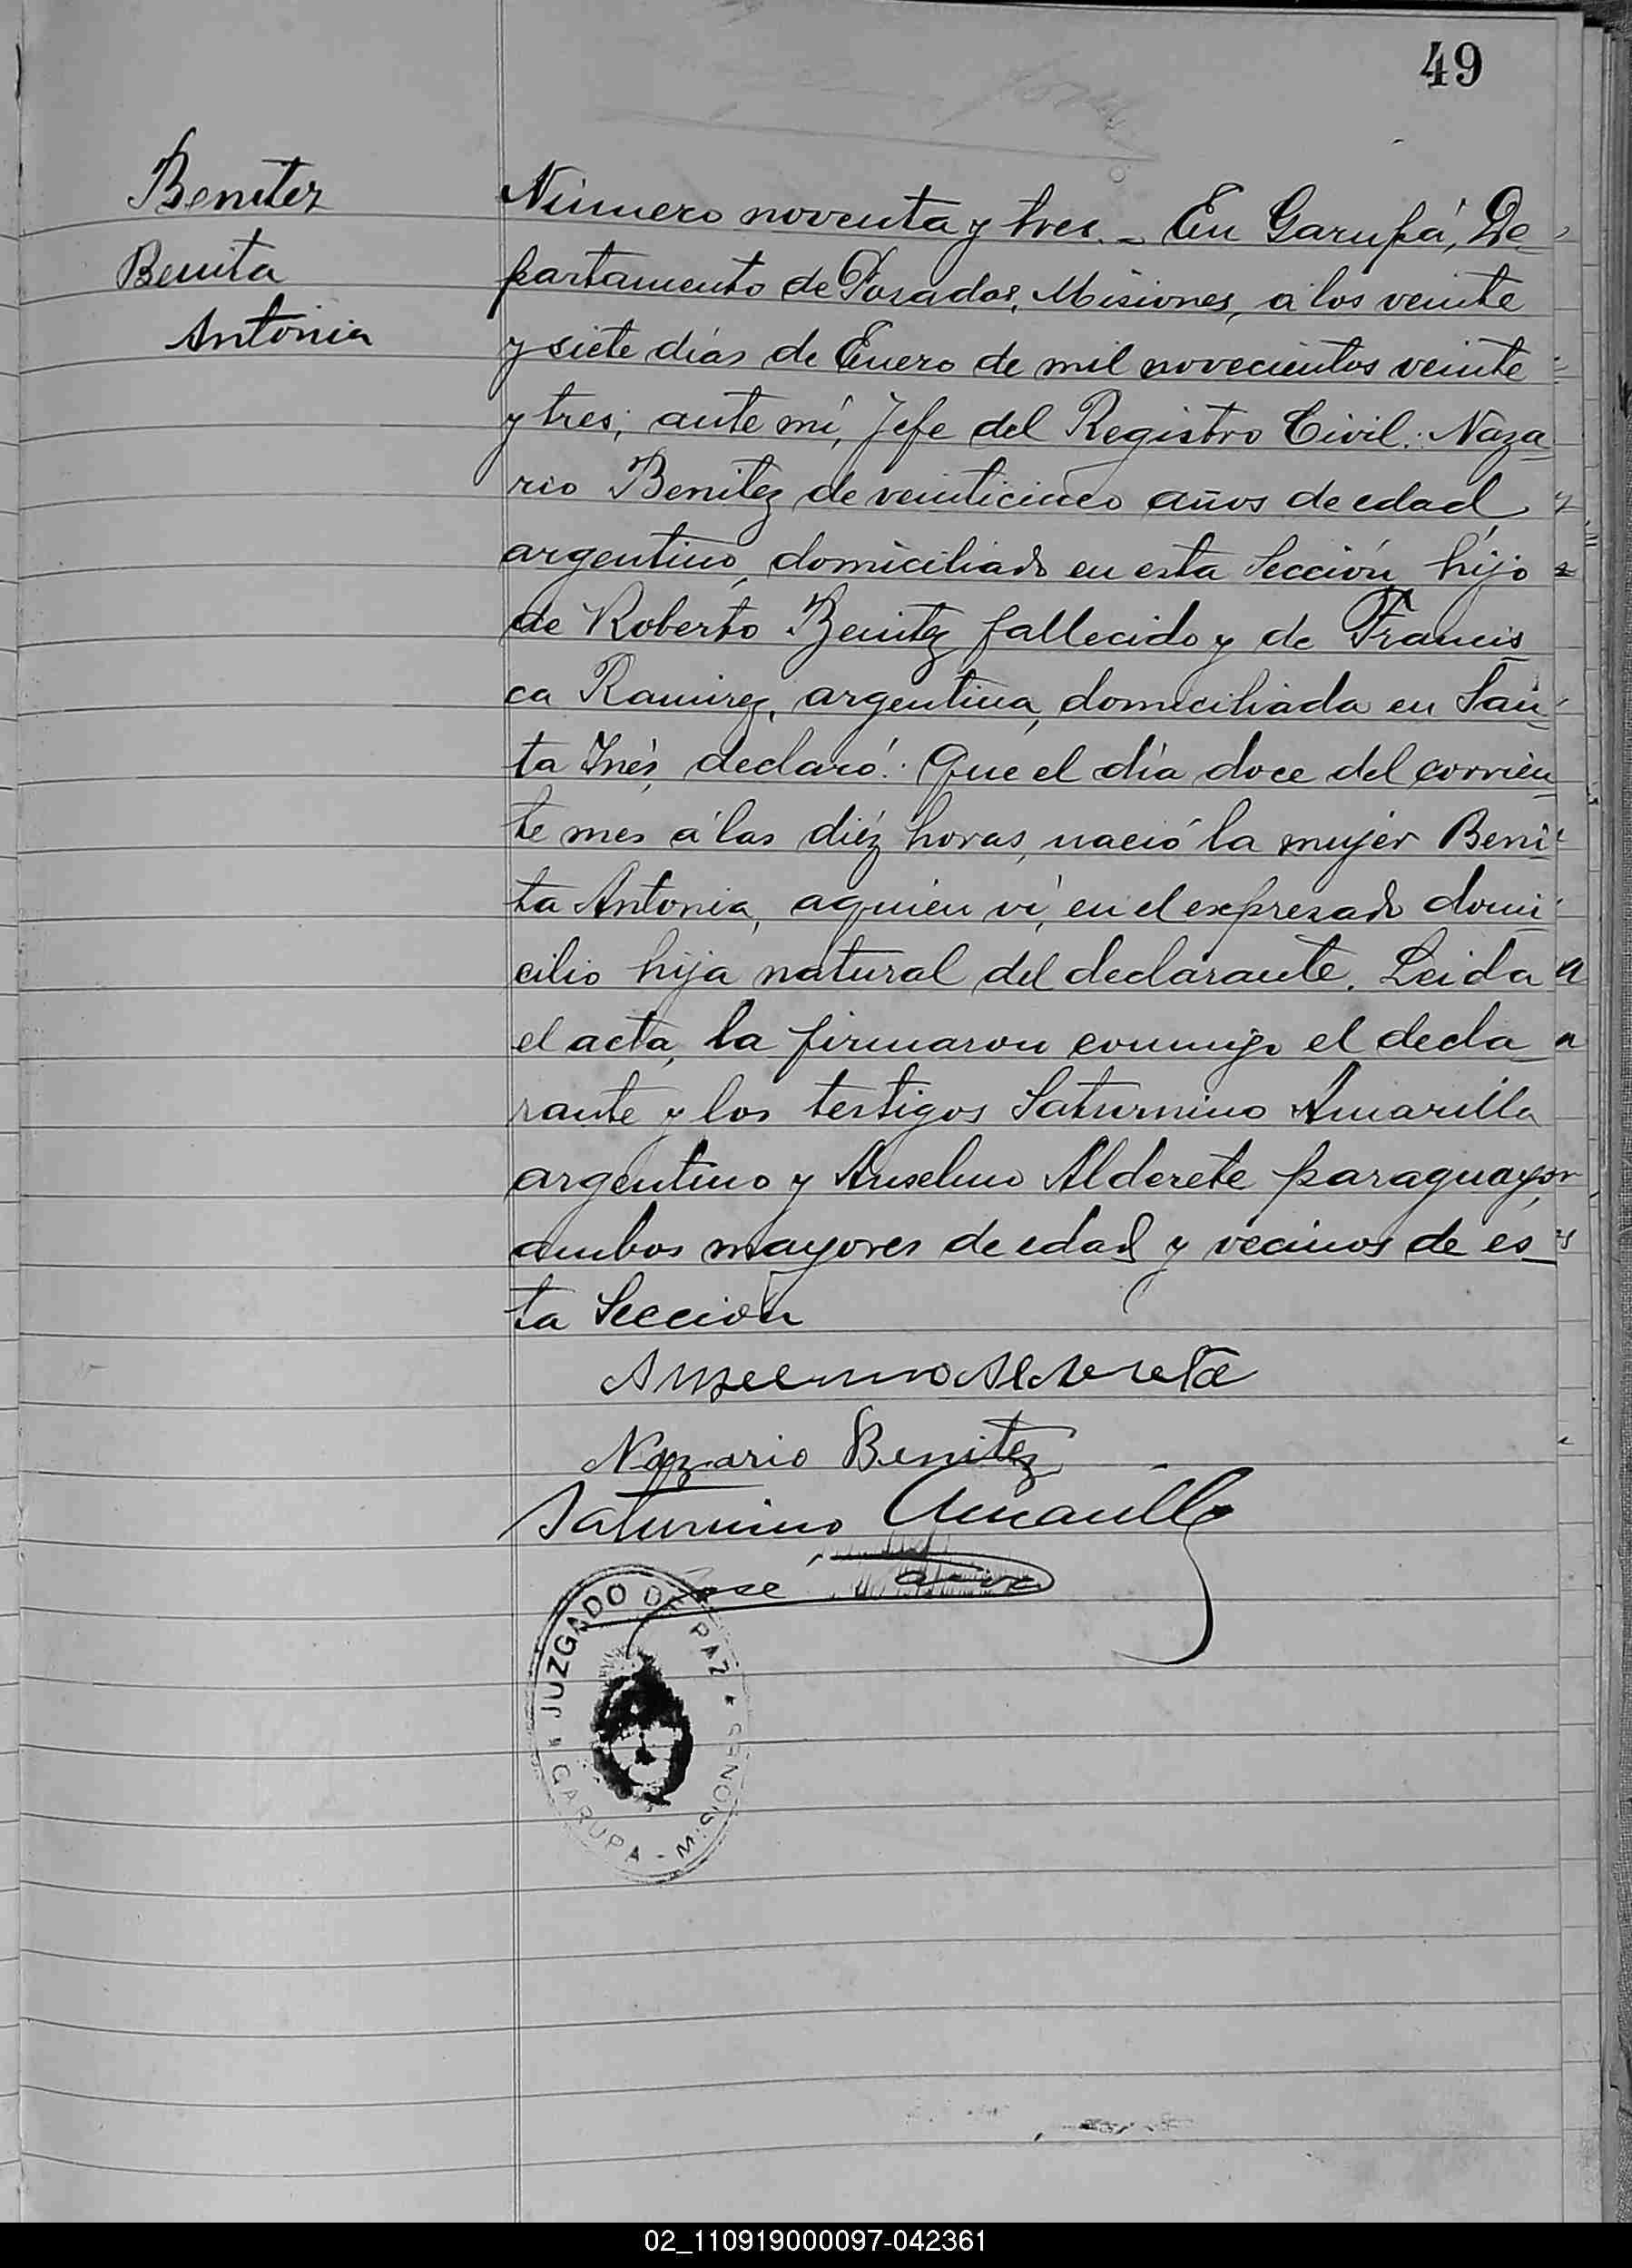 49
Benitez
Benita
Antonia
Número noventa y tres. - En Garupá, De-
partamento de Posadas, Misiones, á los veinte
y siete días de Enero de mil novecientos veinte
y tres; ante mí, Jefe del Registro Civil: Naza-
rio Benitez de veinticinco años de edad,
argentino, domiciliado en esta Sección, hijo
de Roberto Benitez fallecido y de Francis
ca Ramirez, argentina, domiciliada en San-
ta Inés, declaró: Que el día doce del corrien-
te mes á las diéz horas, nació la mujer Beni-
ta Antonia, aquien ví, en el expresado domi-
cilio hija natural del declarante. Leida
el acta, la firmaron conmigo el decla-
rante y los testigos Saturnino Amarilla
argentino y Anselmo Alderete paraguayo,
ambos mayores de edad y vecinos de es-
ta Sección
Anselmo Alderete
Nazario Benitez
Saturnino Amarilla
José
JUZGADO DE PAZ * GARUPA - MISIONES *
02_110919000097-042361